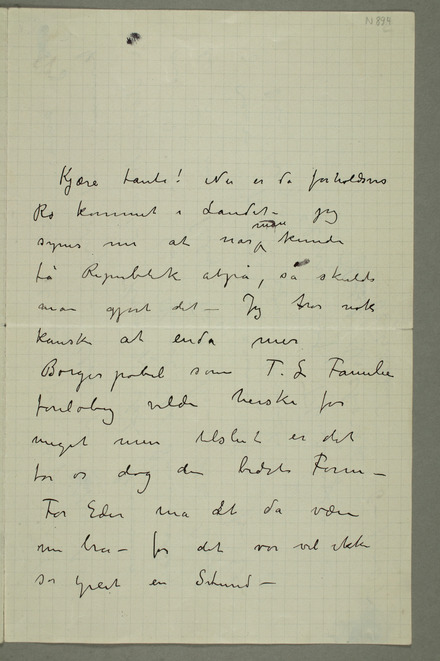 N 894
Kjære tante! Nu er da forholdsvis
Ro kommet i Landet – jeg
synes nu at når man kunde
få Republik altså, så skulde
man gjort det – Jeg tror nok
kanske at enda mer
Borgerpøbel som T. L Familie
foreløbig vilde herske for
meget men tilslut er det
for os dog den bedste Form –
For Eder må det da være
nu bra – for det var vel ikke
så greit en Stund –